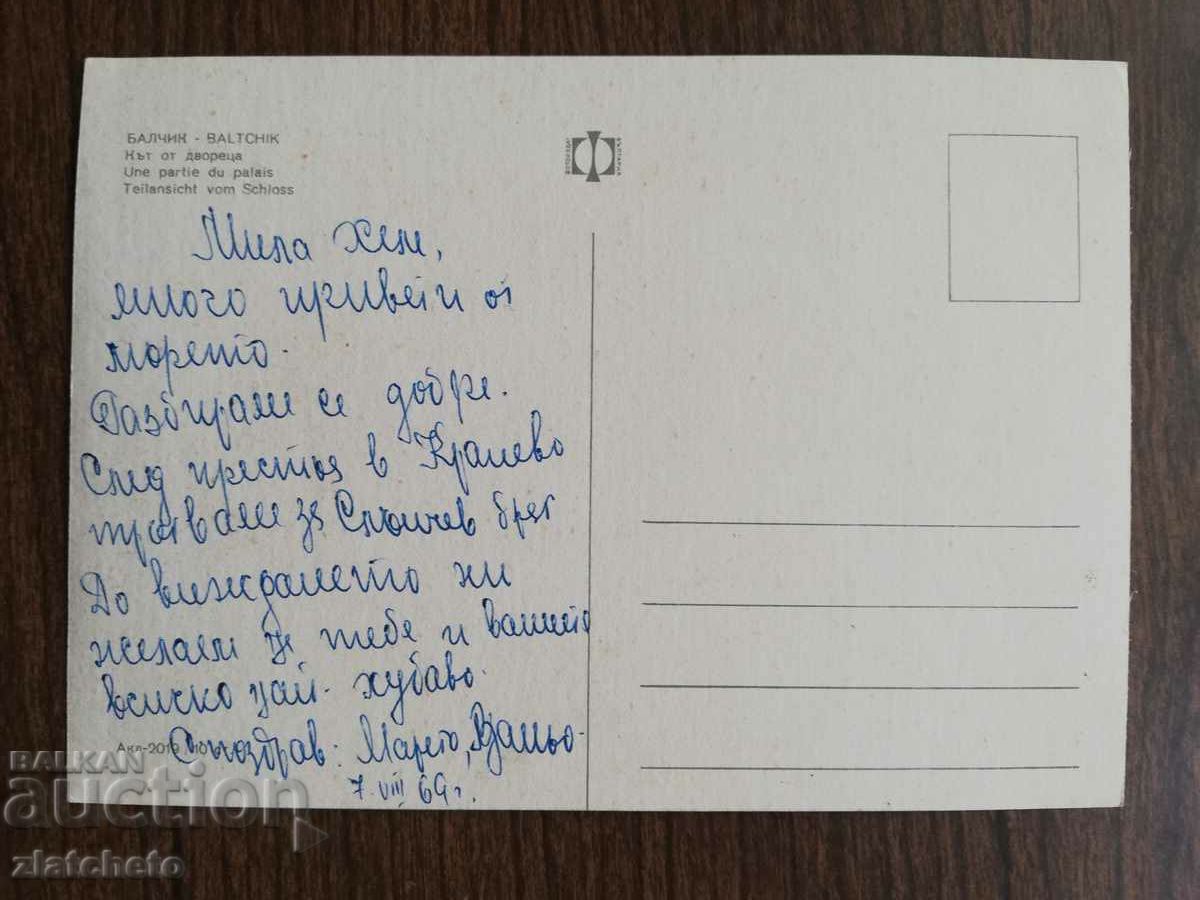 БАЛЧИК - BALTCHIK
Кът от двореца
Une partie du palais
Teilansicht vom Schloss
ФОТОИЗДАТ
БЪЛГАРИЯ
Мила
много привети от
морето.
Разбираме се добре.
След престоя в Кранево
тръгваме за Слънчев бряг
До виждането ни
желаем за тебе и вашето
всичко най-хубаво.
С поздрав: Марето,
7.VIII 69 г.
Акл-2019
BALKAN
auction
zlatcheto